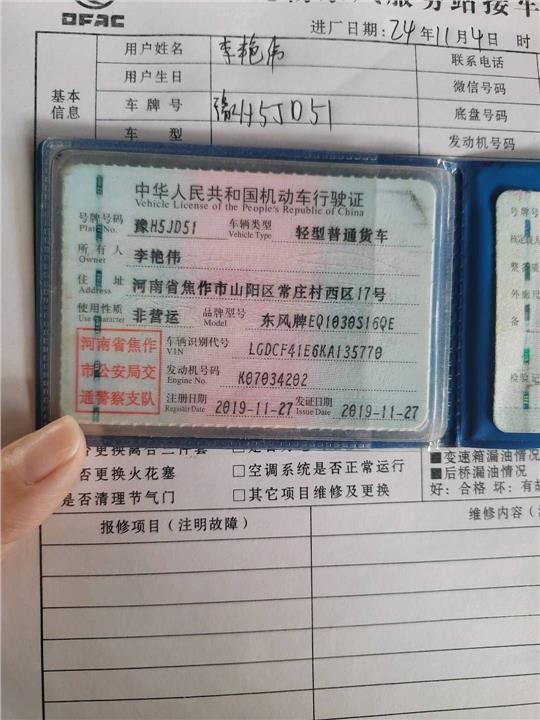 DFAC
服务站接车
进厂日期：24年11月4日 时
用户姓名 李艳伟 联系电话
用户生日 微信号码
基本信息
车牌号 豫H5JD51 底盘号码
车 型 发动机号码
中华人民共和国机动车行驶证
Vehicle License of the People's Republic of China
号牌号码 豫H5JD51 车辆类型 轻型普通货车
Plate No. Vehicle Type
所有人 李艳伟
Owner
住 址 河南省焦作市山阳区常庄村西区17号
Address
使用性质 非营运 品牌型号 东风牌EQ1030S16QE
Use Character Model
河南省焦作
市公安局交
通警察支队
车辆识别代号 LGDCF41E6KA135770
VIN
发动机号码 K07034202
Engine No.
注册日期 2019-11-27 发证日期 2019-11-27
Register Date Issue Date
号牌号
备
检验记
否更换离合三件套
变速箱漏油情况
否更换火花塞 □空调系统是否正常运行 ■后桥漏油情况
是否清理节气门 □其它项目维修及更换 好：合格 坏：有故
报修项目（注明故障） 维修内容（